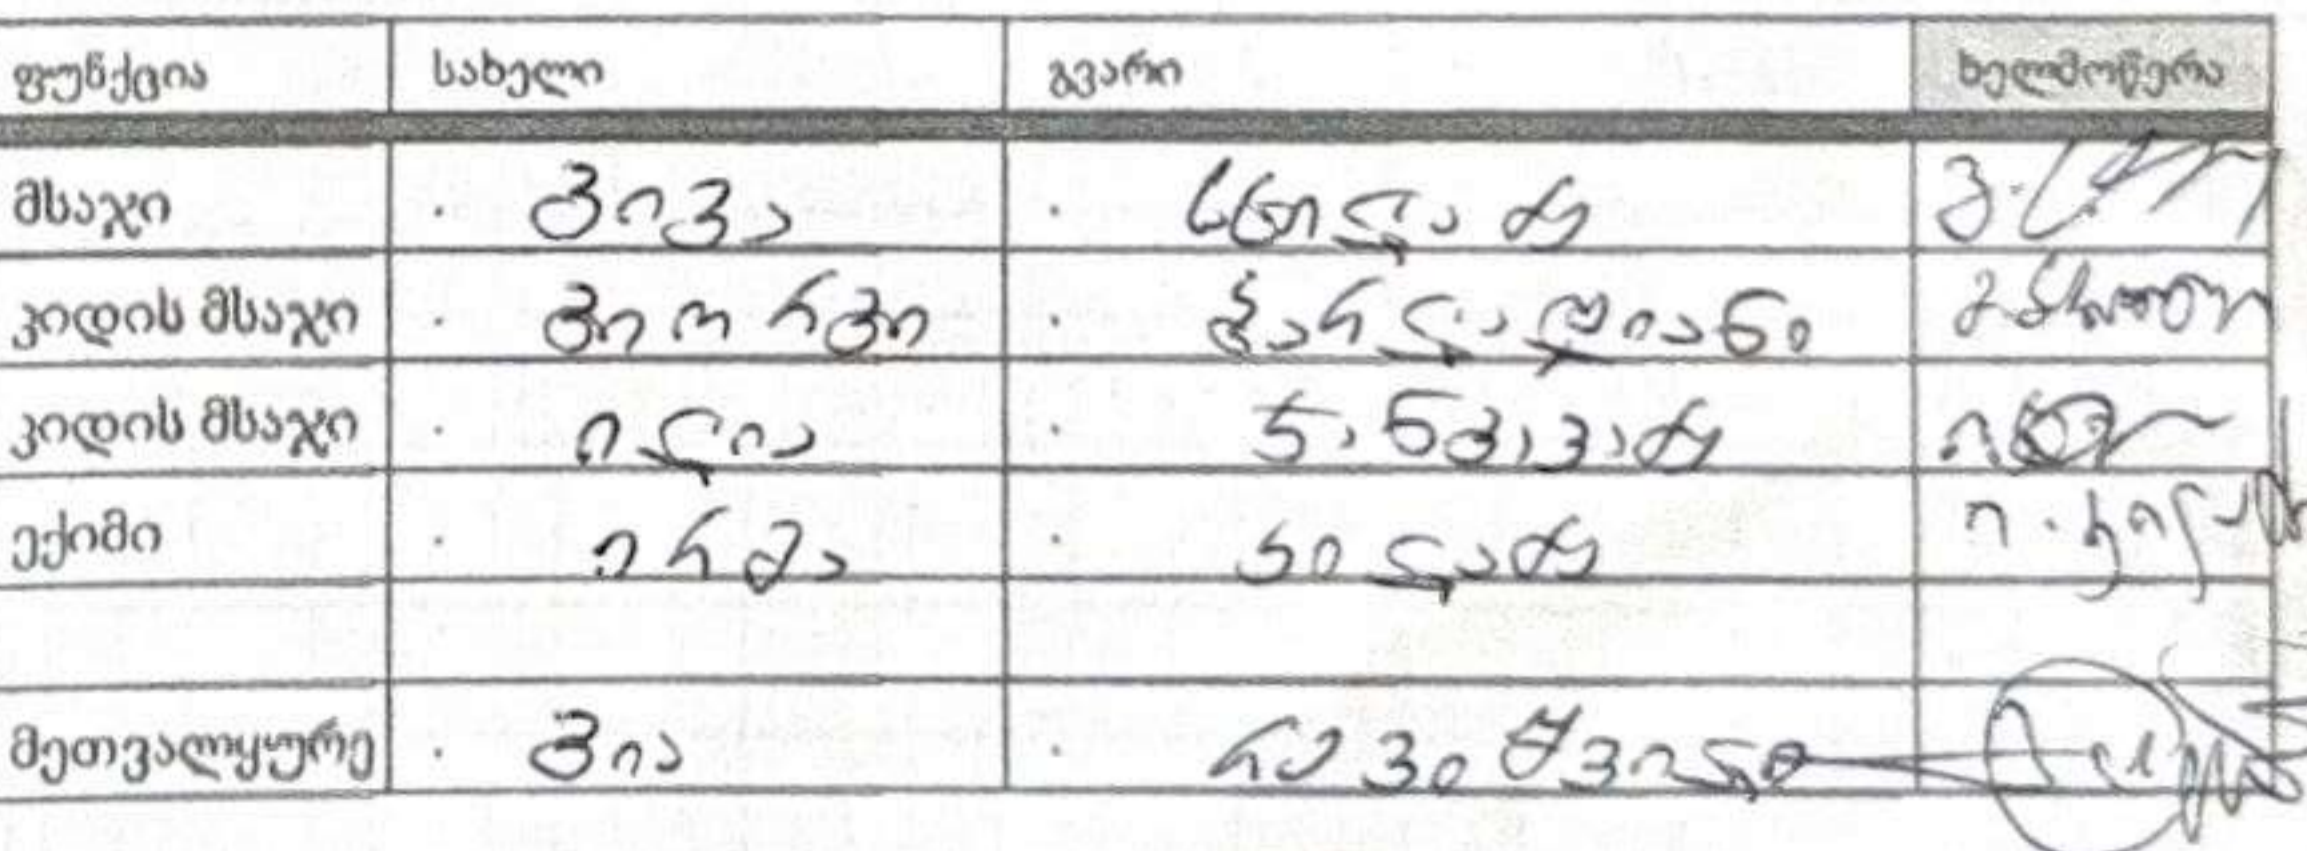 ფუნქცია სახელი გვარი ხელმოწერა
მსაჯი . გივა სტილაძე
კიდის მსაჯი . გიორგი პარლაღიანი
კიდის მსაჯი . ილია ჯანგავაძე
ექიმი . ირმა კილაძე
მეთვალყურე . გია რევიშვილი